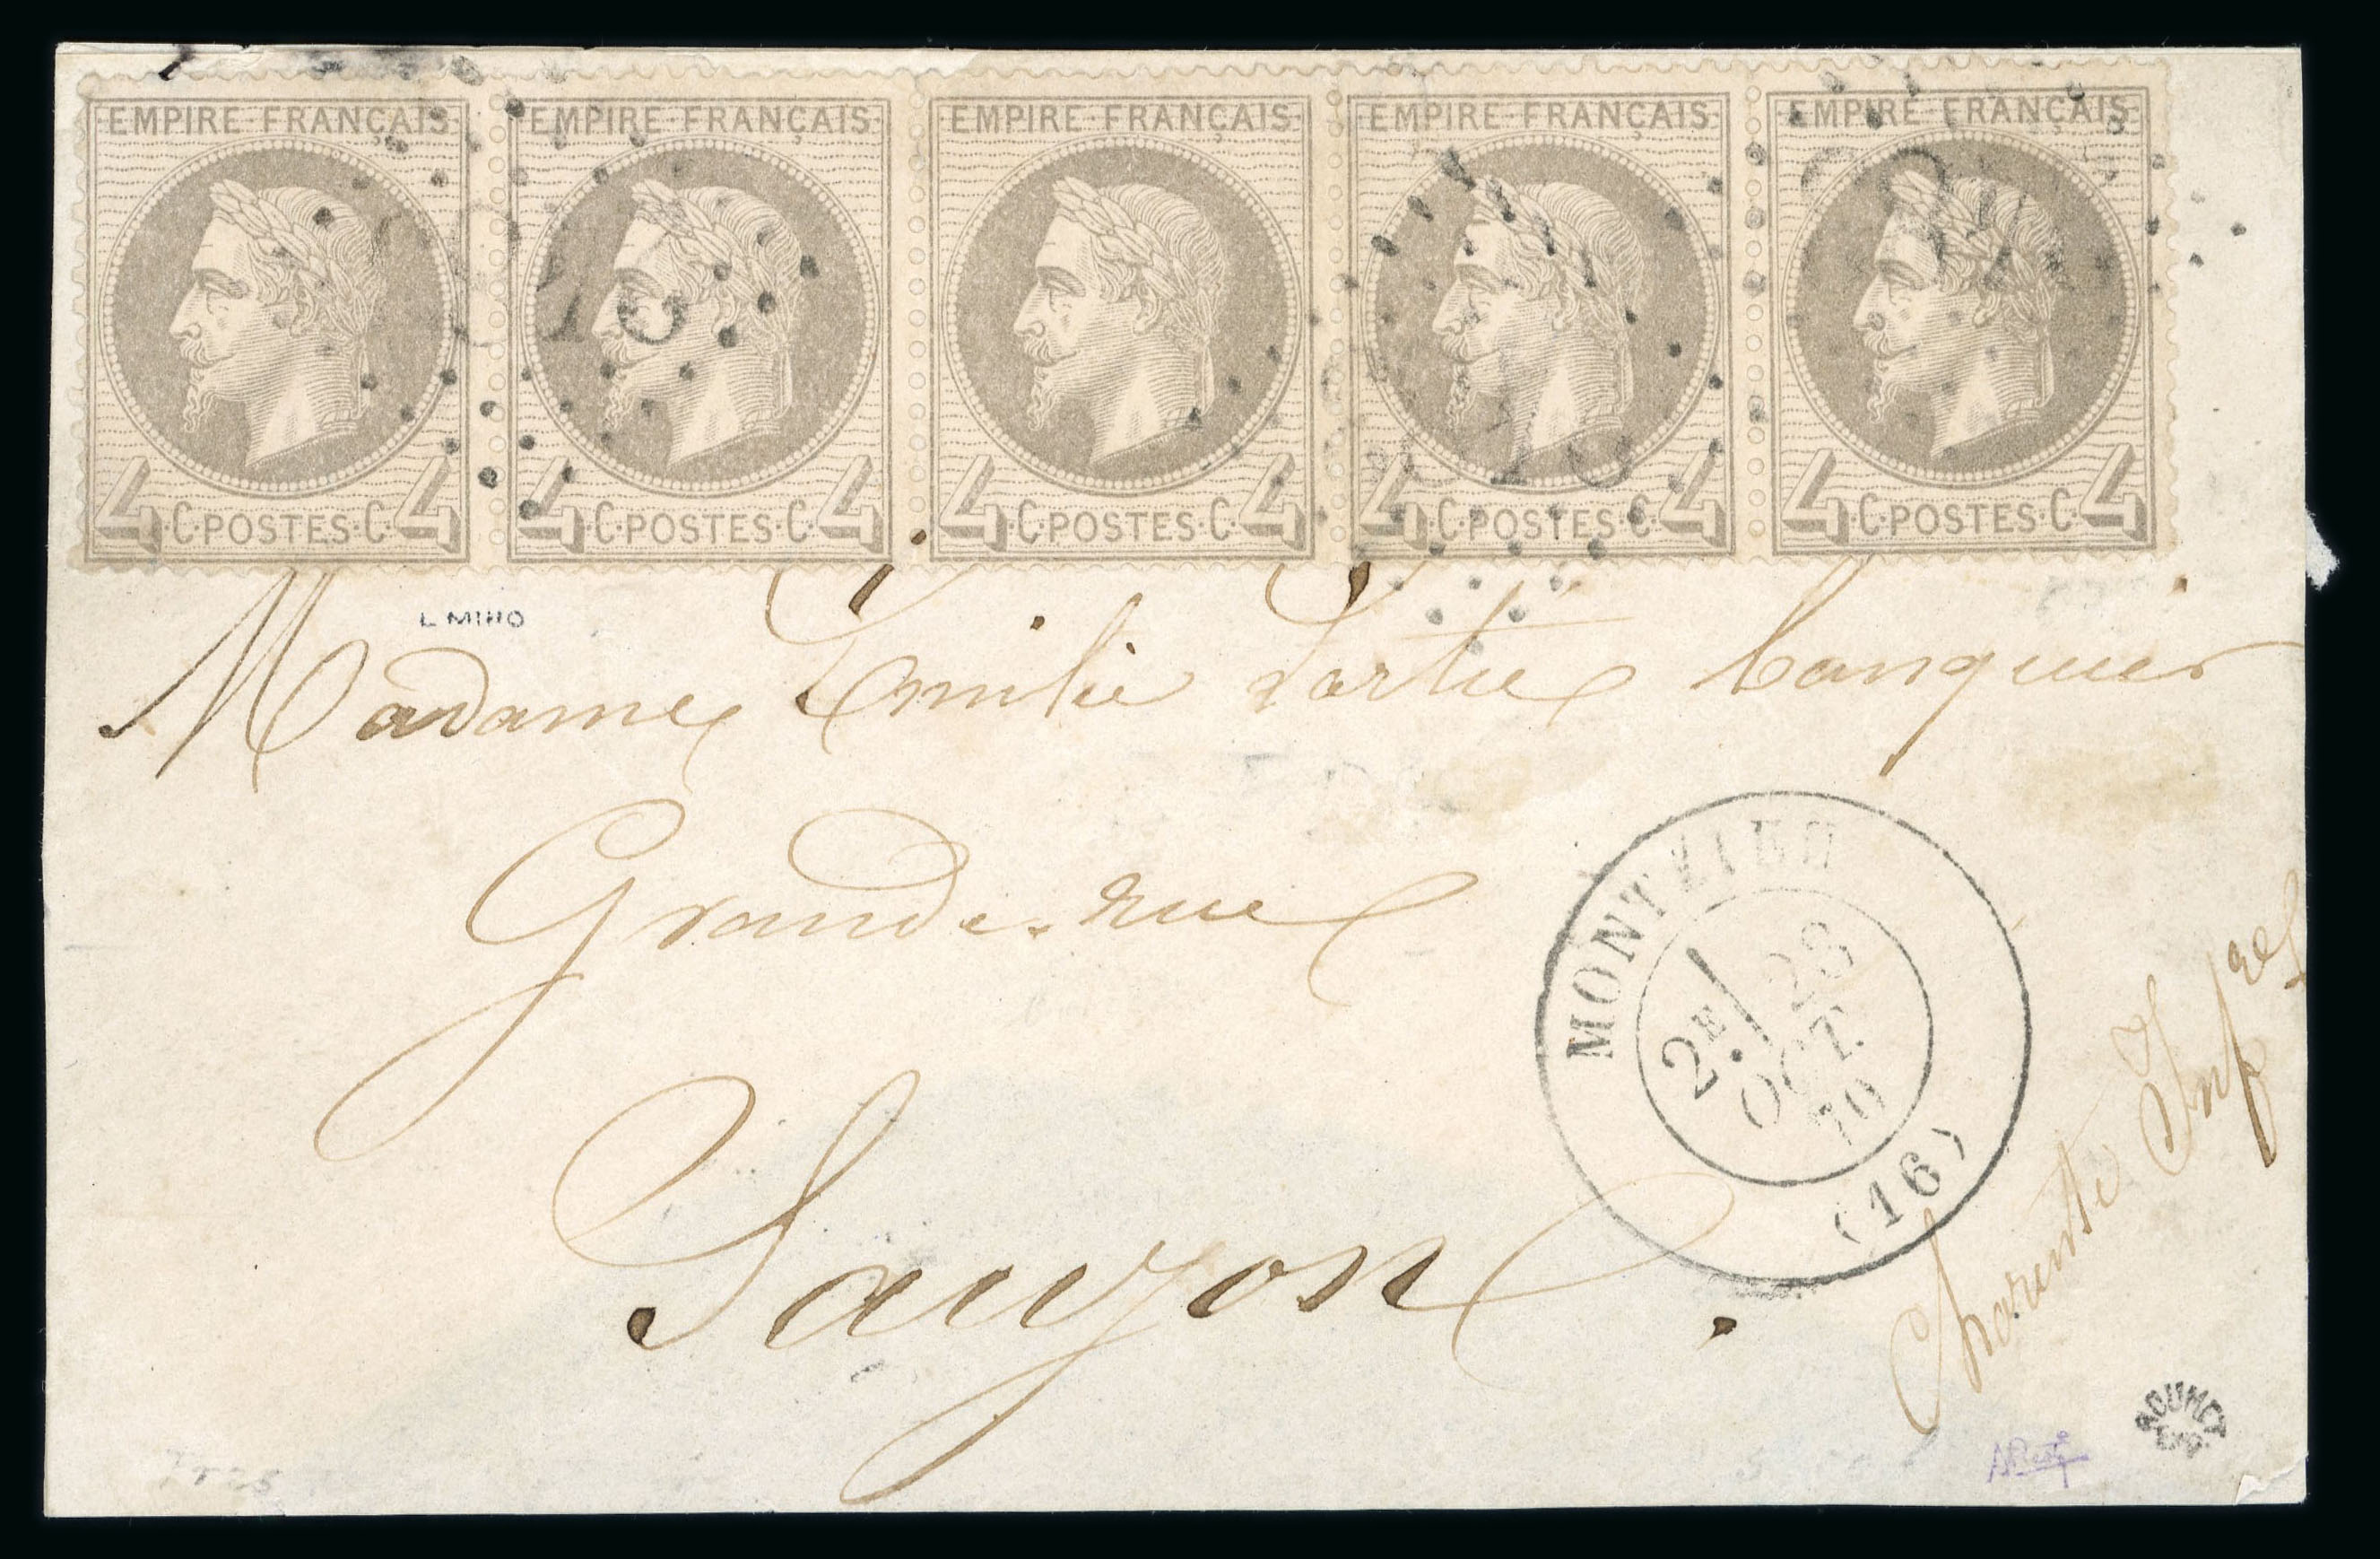 EMPIRE·FRANÇAIS EMPIRE·FRANÇAIS EMPIRE·FRANÇAIS EMPIRE·FRANÇAIS EMPIRE·FRANÇAIS
4·C·POSTES·C·4 4·C·POSTES·C·4 4·C·POSTES·C·4 4·C·POSTES·C·4 4·C·POSTES·C·4
L MIRO
Madame Emilie Lartie banquier
Grande-rue
MONT
2E 28
OCT.
70
(16)
Saujon
Charente Infre
ROUMET